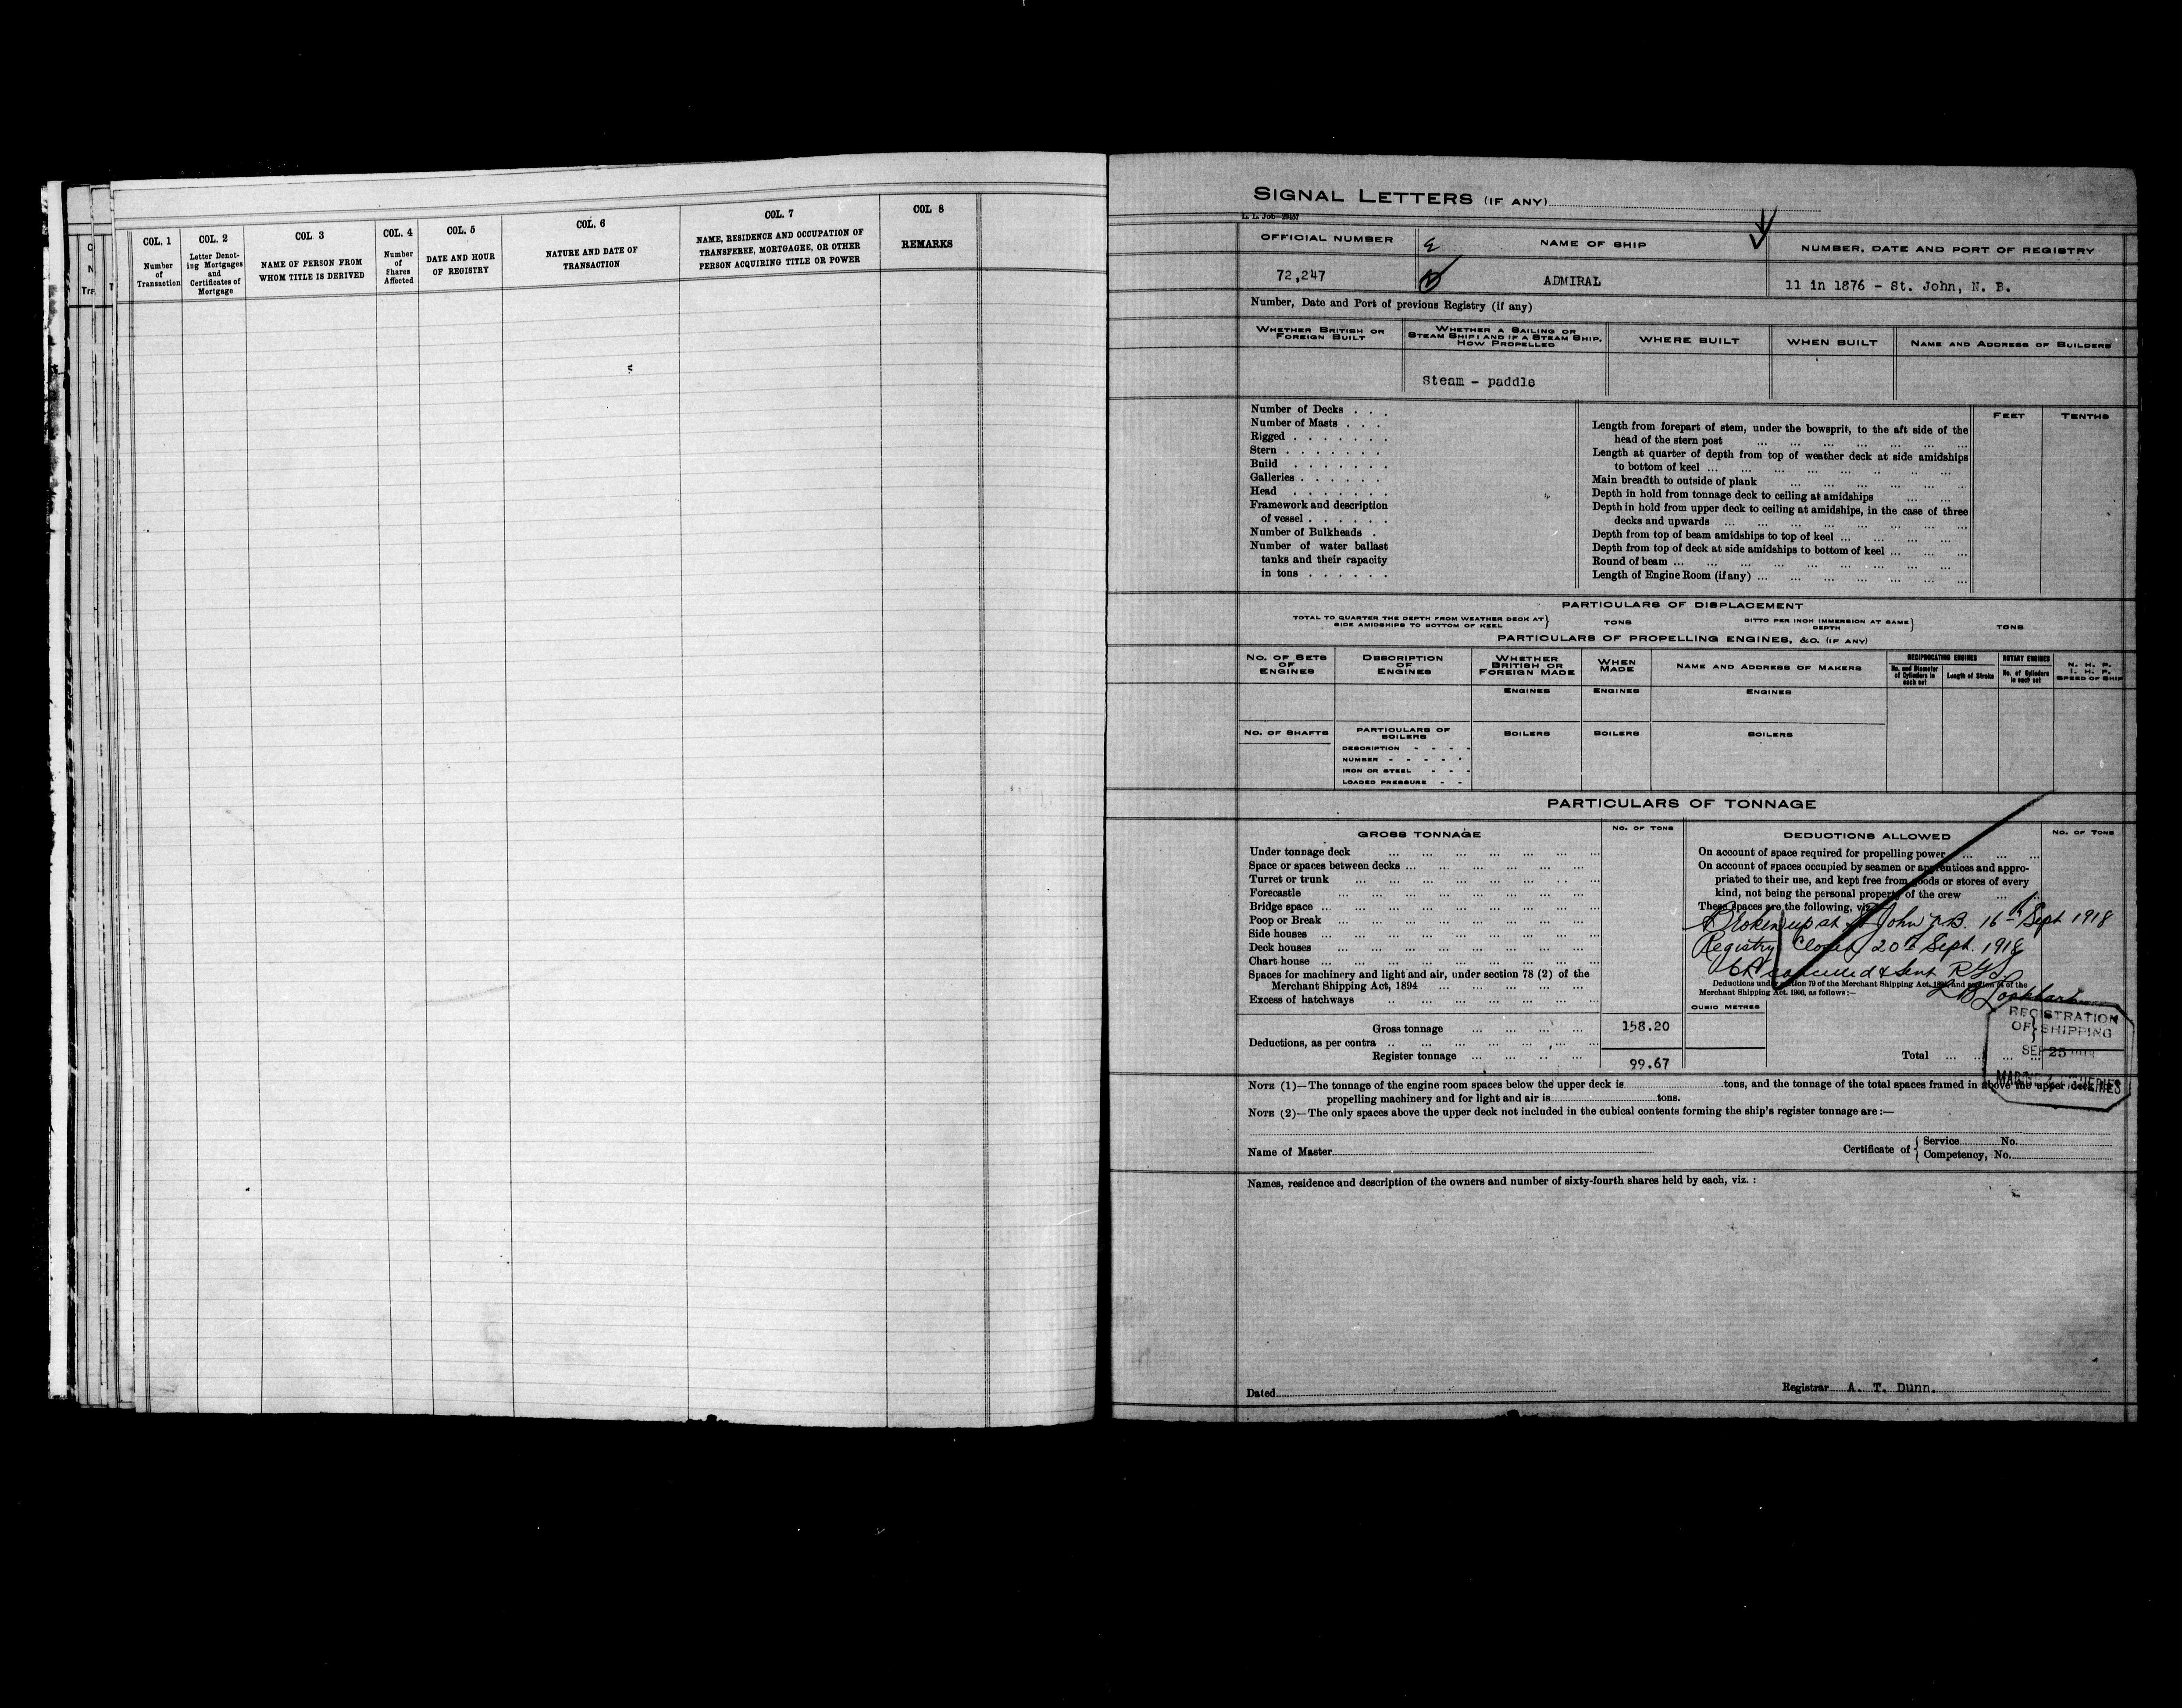 COL. 1
Number
of
Transaction
COL. 2
Letter Denot-
ing Mortgages
and
Certificates of
Mortgage
COL 3
NAME OF PERSON FROM
WHOM TITLE IS DERIVED
COL. 4
Number
of
Shares
Affected
COL. 5
DATE AND HOUR
OF REGISTRY
COL. 6
NATURE AND DATE OF
TRANSACTION
COL. 7
NAME, RESIDENCE AND OCCUPATION OF
TRANSFEREE, MORTGAGEE, OR OTHER
PERSON ACQUIRING TITLE OR POWER
COL 8
REMARKS
SIGNAL LETTERS (IF ANY)
L. I. Job—29457
OFFICIAL NUMBER
NAME OF SHIP
NUMBER, DATE AND PORT OF REGISTRY
72,247
ADMIRAL
11 in 1876 - St. John, N. B.
Number, Date and Port of previous Registry (if any)
WHETHER BRITISH OR
FOREIGN BUILT
WHETHER A SAILING OR
STEAM SHIP; AND IF A STEAM SHIP,
HOW PROPELLED
WHERE BUILT
WHEN BUILT
NAME AND ADDRESS OF BUILDERS
Steam - paddle
Number of Decks . . .
Number of Masts . . .
Rigged . . . . . . .
Stern . . . . . . .
Build . . . . . . .
Galleries . . . . . .
Head . . . . . . .
Framework and description
of vessel . . . . . .
Number of Bulkheads .
Number of water ballast
tanks and their capacity
in tons . . . . . .
FEET
TENTHS
Length from forepart of stem, under the bowsprit, to the aft side of the
head of the stern post
Length at quarter of depth from top of weather deck at side amidships
to bottom of keel ...
Main breadth to outside of plank
Depth in hold from tonnage deck to ceiling at amidships
Depth in hold from upper deck to ceiling at amidships, in the case of three
decks and upwards
Depth from top of beam amidships to top of keel ...
Depth from top of deck at side amidships to bottom of keel ...
Round of beam ...
Length of Engine Room (if any) ...
PARTICULARS OF DISPLACEMENT
TOTAL TO QUARTER THE DEPTH FROM WEATHER DECK AT
SIDE AMIDSHIPS TO BOTTOM OF KEEL
TONS
DITTO PER INCH IMMERSION AT SAME
DEPTH
TONS
PARTICULARS OF PROPELLING ENGINES, &C. (IF ANY)
NO. OF SETS
OF
ENGINES
DESCRIPTION
OF
ENGINES
WHETHER
BRITISH OR
FOREIGN MADE
WHEN
MADE
NAME AND ADDRESS OF MAKERS
RECIPROCATING ENGINES
No. and Diameter
of Cylinders in
each set
Length of Stroke
ROTARY ENGINES
No. of Cylinders
in each set
N. H. P.
I. H. P.
SPEED OF SHIP
ENGINES
ENGINES
ENGINES
NO. OF SHAFTS
PARTICULARS OF
BOILERS
BOILERS
BOILERS
BOILERS
DESCRIPTION
NUMBER
IRON OR STEEL
LOADED PRESSURE
PARTICULARS OF TONNAGE
GROSS TONNAGE
NO. OF TONS
Under tonnage deck
Space or spaces between decks ...
Turret or trunk
Forecastle
Bridge space ...
Poop or Break
Side houses
Deck houses
Chart house ...
Spaces for machinery and light and air, under section 78 (2) of the
Merchant Shipping Act, 1894
Excess of hatchways
Gross tonnage
158.20
Deductions, as per contra
Register tonnage
99.67
DEDUCTIONS ALLOWED
NO. OF TONS
On account of space required for propelling power
On account of spaces occupied by seamen or apprentices and appro-
priated to their use, and kept free from goods or stores of every
kind, not being the personal property of the crew
These spaces are the following, viz.
Broken up at St John N.B. 16th Sept 1918
Registry Closed 20th Sept. 1918
cancelled & sent R.G.S.
Deductions under section 79 of the Merchant Shipping Act, 1894, and section 54 of the
Merchant Shipping Act. 1906, as follows :—
Lockhart
CUBIC METRES
REGISTRATION
OF SHIPPING
SEP 25
MARINE & FISHERIES
Total
NOTE (1)—The tonnage of the engine room spaces below the upper deck is tons, and the tonnage of the total spaces framed in above the upper deck for
propelling machinery and for light and air is tons.
NOTE (2)—The only spaces above the upper deck not included in the cubical contents forming the ship's register tonnage are :—
Name of Master
Certificate of
Service No.
Competency, No.
Names, residence and description of the owners and number of sixty-fourth shares held by each, viz. :
Dated
Registrar A. T. Dunn.